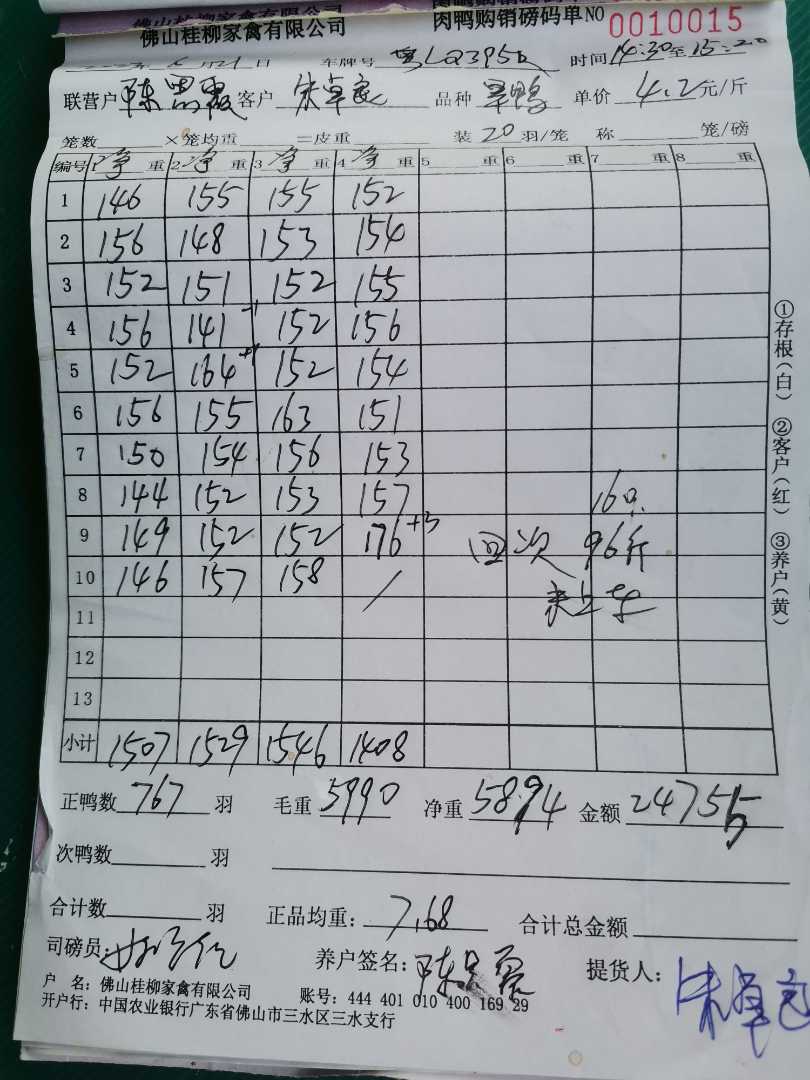 佛山桂柳家禽有限公司 肉鸭购销磅码单NO 0010015
日 车牌号 粤LQ395 时间 14:30至15:20
联营户 陈 客户 朱卓 品种 鸭 单价 4.2 元/斤
笼数 ×笼均重 =皮重 装 20 羽/笼 称 笼/磅
编号 1净重 2净重 3净重 4净重 5 重 6 重 7 重 8 重
1 146 155 155 152
2 156 148 153 154
3 152 151 152 155
4 156 141 -1 152 156
5 152 164 +1 152 154
6 156 155 163 151
7 150 154 156 153
8 144 152 153 157 16只
9 149 152 152 176 +3 回次 96斤
10 146 157 158 / 未上车
11
12
13
小计 1507 1529 1546 1408
正鸭数 767 羽 毛重 5990 净重 5894 金额 24755
次鸭数 羽
合计数 羽 正品均重: 7,68 合计总金额
司磅员:
养户签名: 陈 提货人: 朱卓
户 名: 佛山桂柳家禽有限公司 账号: 444 401 010 400 169 29
开户行: 中国农业银行广东省佛山市三水区三水支行
①存根(白) ②客户(红) ③养户(黄)